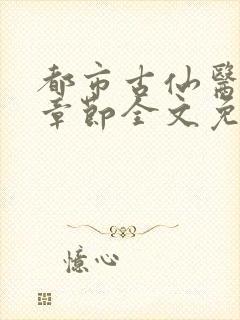 都市古仙醫
章節全文免
憶心